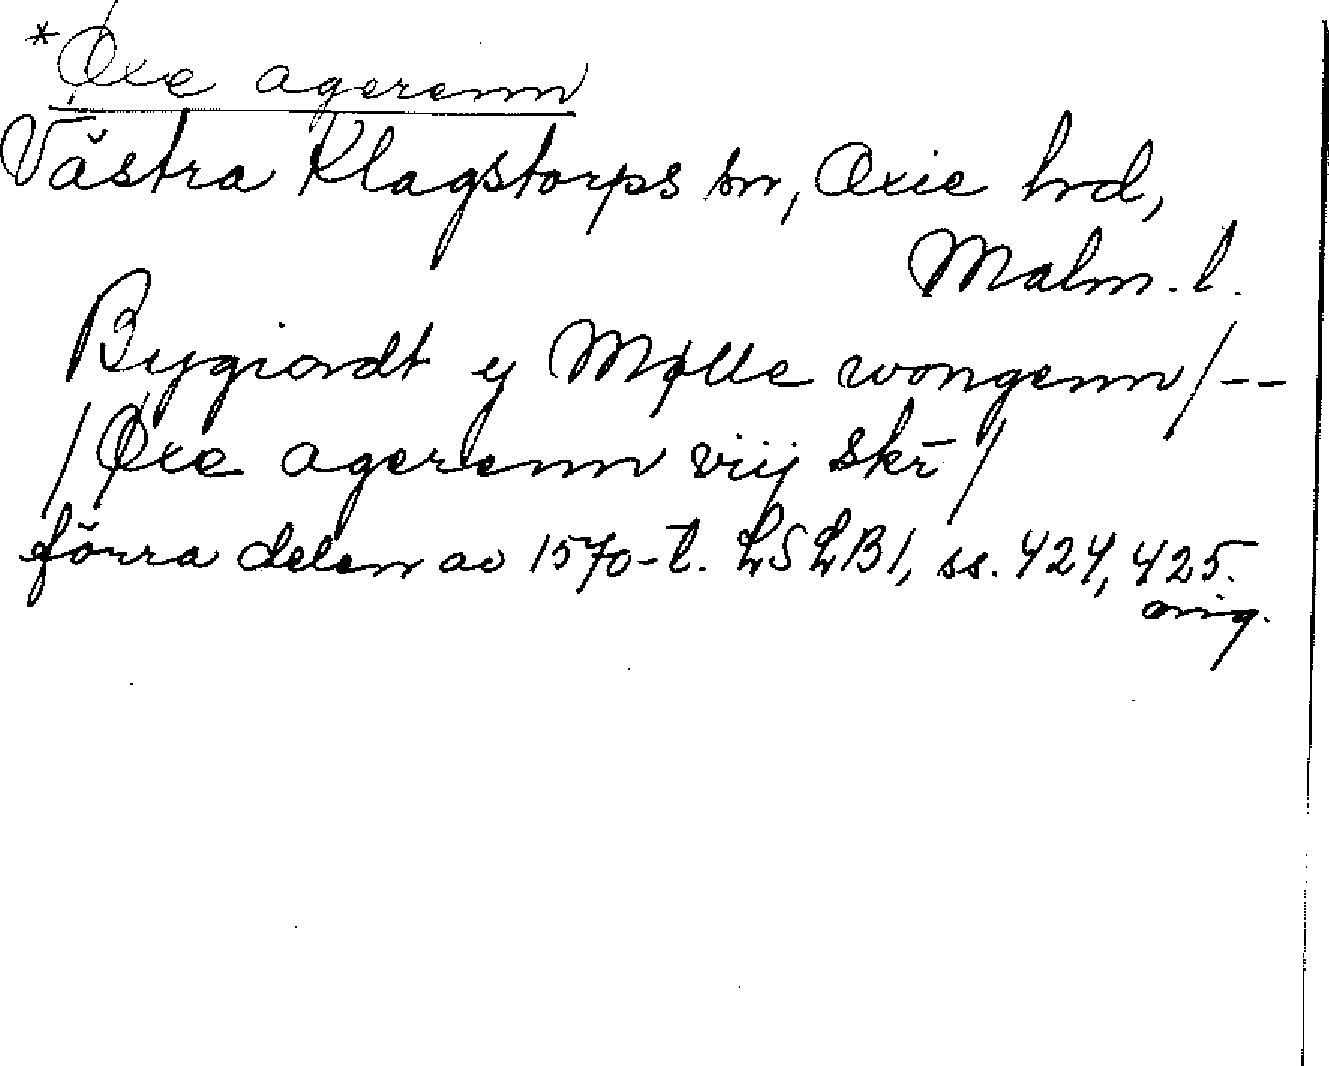 *Øxe agerenn
Västra Klagstorps sn, Oxie hd,
Malm. l.
Bygiordt y Mølle wongenn/--
/Øxe agerenn viij skr̄/
förra delen av 1570-t. LSLB1, ss. 424, 425.
orig.